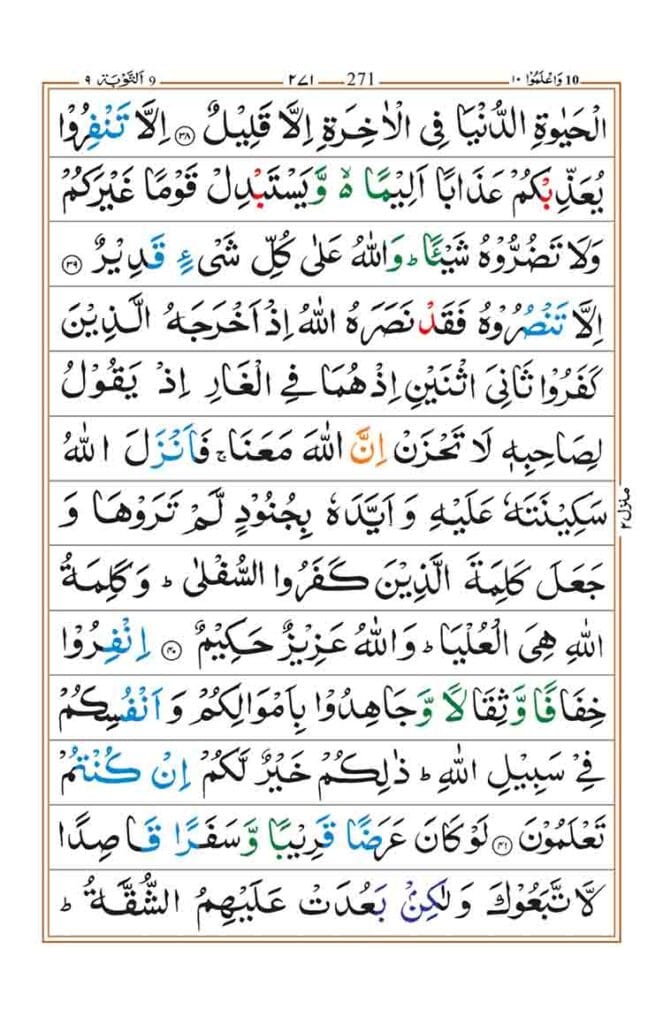 وَاعْلَمُوْۤا ١٠ 10 271 ٢٧١ 9 اَلتَّوْبَة ٩
الْحَيٰوةِ الدُّنْيَا فِى الْاٰخِرَةِ اِلَّا قَلِيْلٌ ﴿٣٨﴾ اِلَّا تَنْفِرُوْا
يُعَذِّبْكُمْ عَذَابًا اَلِيْمًا ۙ۬ وَّيَسْتَبْدِلْ قَوْمًا غَيْرَكُمْ
وَلَا تَضُرُّوْهُ شَيْـًٔا ؕ وَاللّٰهُ عَلٰى كُلِّ شَىْءٍ قَدِيْرٌ ﴿٣٩﴾
اِلَّا تَنْصُرُوْهُ فَقَدْ نَصَرَهُ اللّٰهُ اِذْ اَخْرَجَهُ الَّذِيْنَ
كَفَرُوْا ثَانِىَ اثْنَيْنِ اِذْ هُمَا فِى الْغَارِ اِذْ يَقُوْلُ
لِصَاحِبِهٖ لَا تَحْزَنْ اِنَّ اللّٰهَ مَعَنَا ۚ فَاَنْزَلَ اللّٰهُ
سَكِيْنَتَهٗ عَلَيْهِ وَ اَيَّدَهٗ بِجُنُوْدٍ لَّمْ تَرَوْهَا وَ
منزل ٢
جَعَلَ كَلِمَةَ الَّذِيْنَ كَفَرُوا السُّفْلٰى ؕ وَ كَلِمَةُ
اللّٰهِ هِىَ الْعُلْيَا ؕ وَاللّٰهُ عَزِيْزٌ حَكِيْمٌ ﴿٤٠﴾ اِنْفِرُوْا
خِفَافًا وَّثِقَالًا وَّجَاهِدُوْا بِاَمْوَالِكُمْ وَ اَنْفُسِكُمْ
فِىْ سَبِيْلِ اللّٰهِ ؕ ذٰلِكُمْ خَيْرٌ لَّكُمْ اِنْ كُنْتُمْ
تَعْلَمُوْنَ ﴿٤١﴾ لَوْ كَانَ عَرَضًا قَرِيْبًا وَّسَفَرًا قَاصِدًا
لَّاتَّبَعُوْكَ وَلٰكِنْۢ بَعُدَتْ عَلَيْهِمُ الشُّقَّةُ ؕ